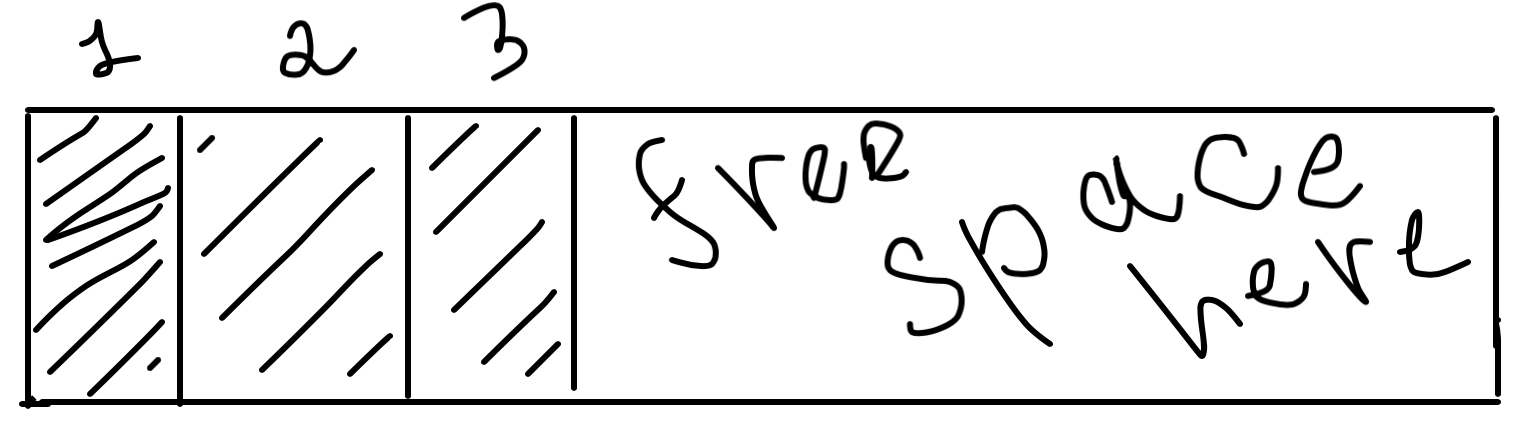 1 2 3
free
space
here